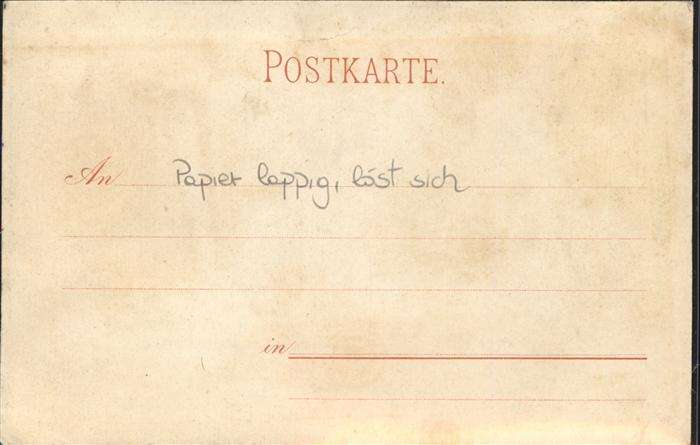 POSTKARTE.
An Papier lappig, löst sich
in